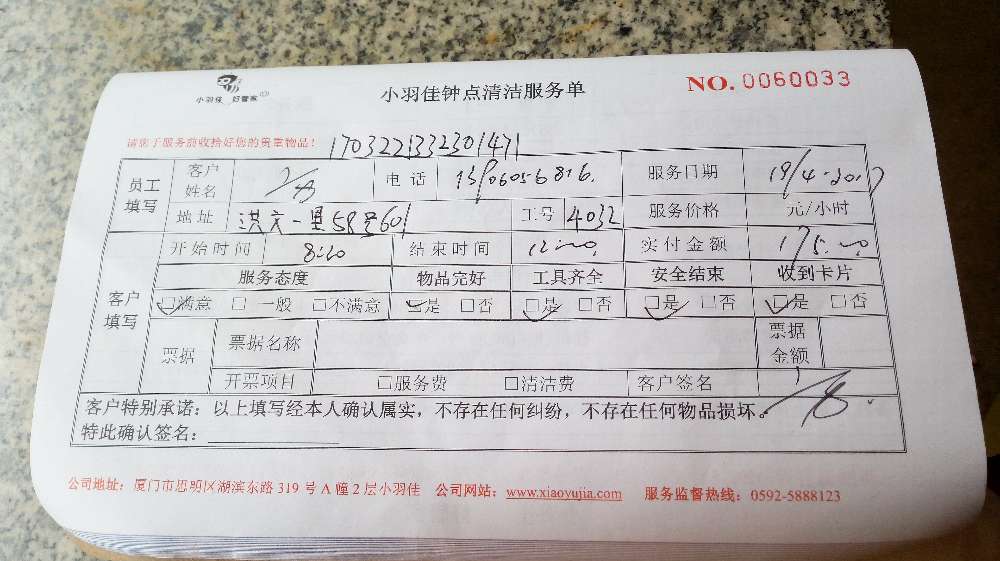 小羽佳 好管家
小羽佳钟点清洁服务单
NO. 0060033
请您于服务前收拾好您的贵重物品！
1703221332301471
员工填写 客户姓名 电话 服务日期 19/4-2017
地址 洪文一里58号601 工号 4032 服务价格 元/小时
客户填写 开始时间 8:20 结束时间 12:00 实付金额 175.00
服务态度 物品完好 工具齐全 安全结束 收到卡片
☑满意 □ 一般 □不满意 ☑是 □否 ☑是 □否 ☑是 □否 ☑是 □否
票据 票据名称 票据金额
开票项目 □服务费 □清洁费 客户签名
客户特别承诺：以上填写经本人确认属实，不存在任何纠纷，不存在任何物品损坏。
特此确认签名：
公司地址：厦门市思明区湖滨东路 319 号 A 幢 2 层小羽佳 公司网站：www.xiaoyujia.com 服务监督热线：0592-5888123